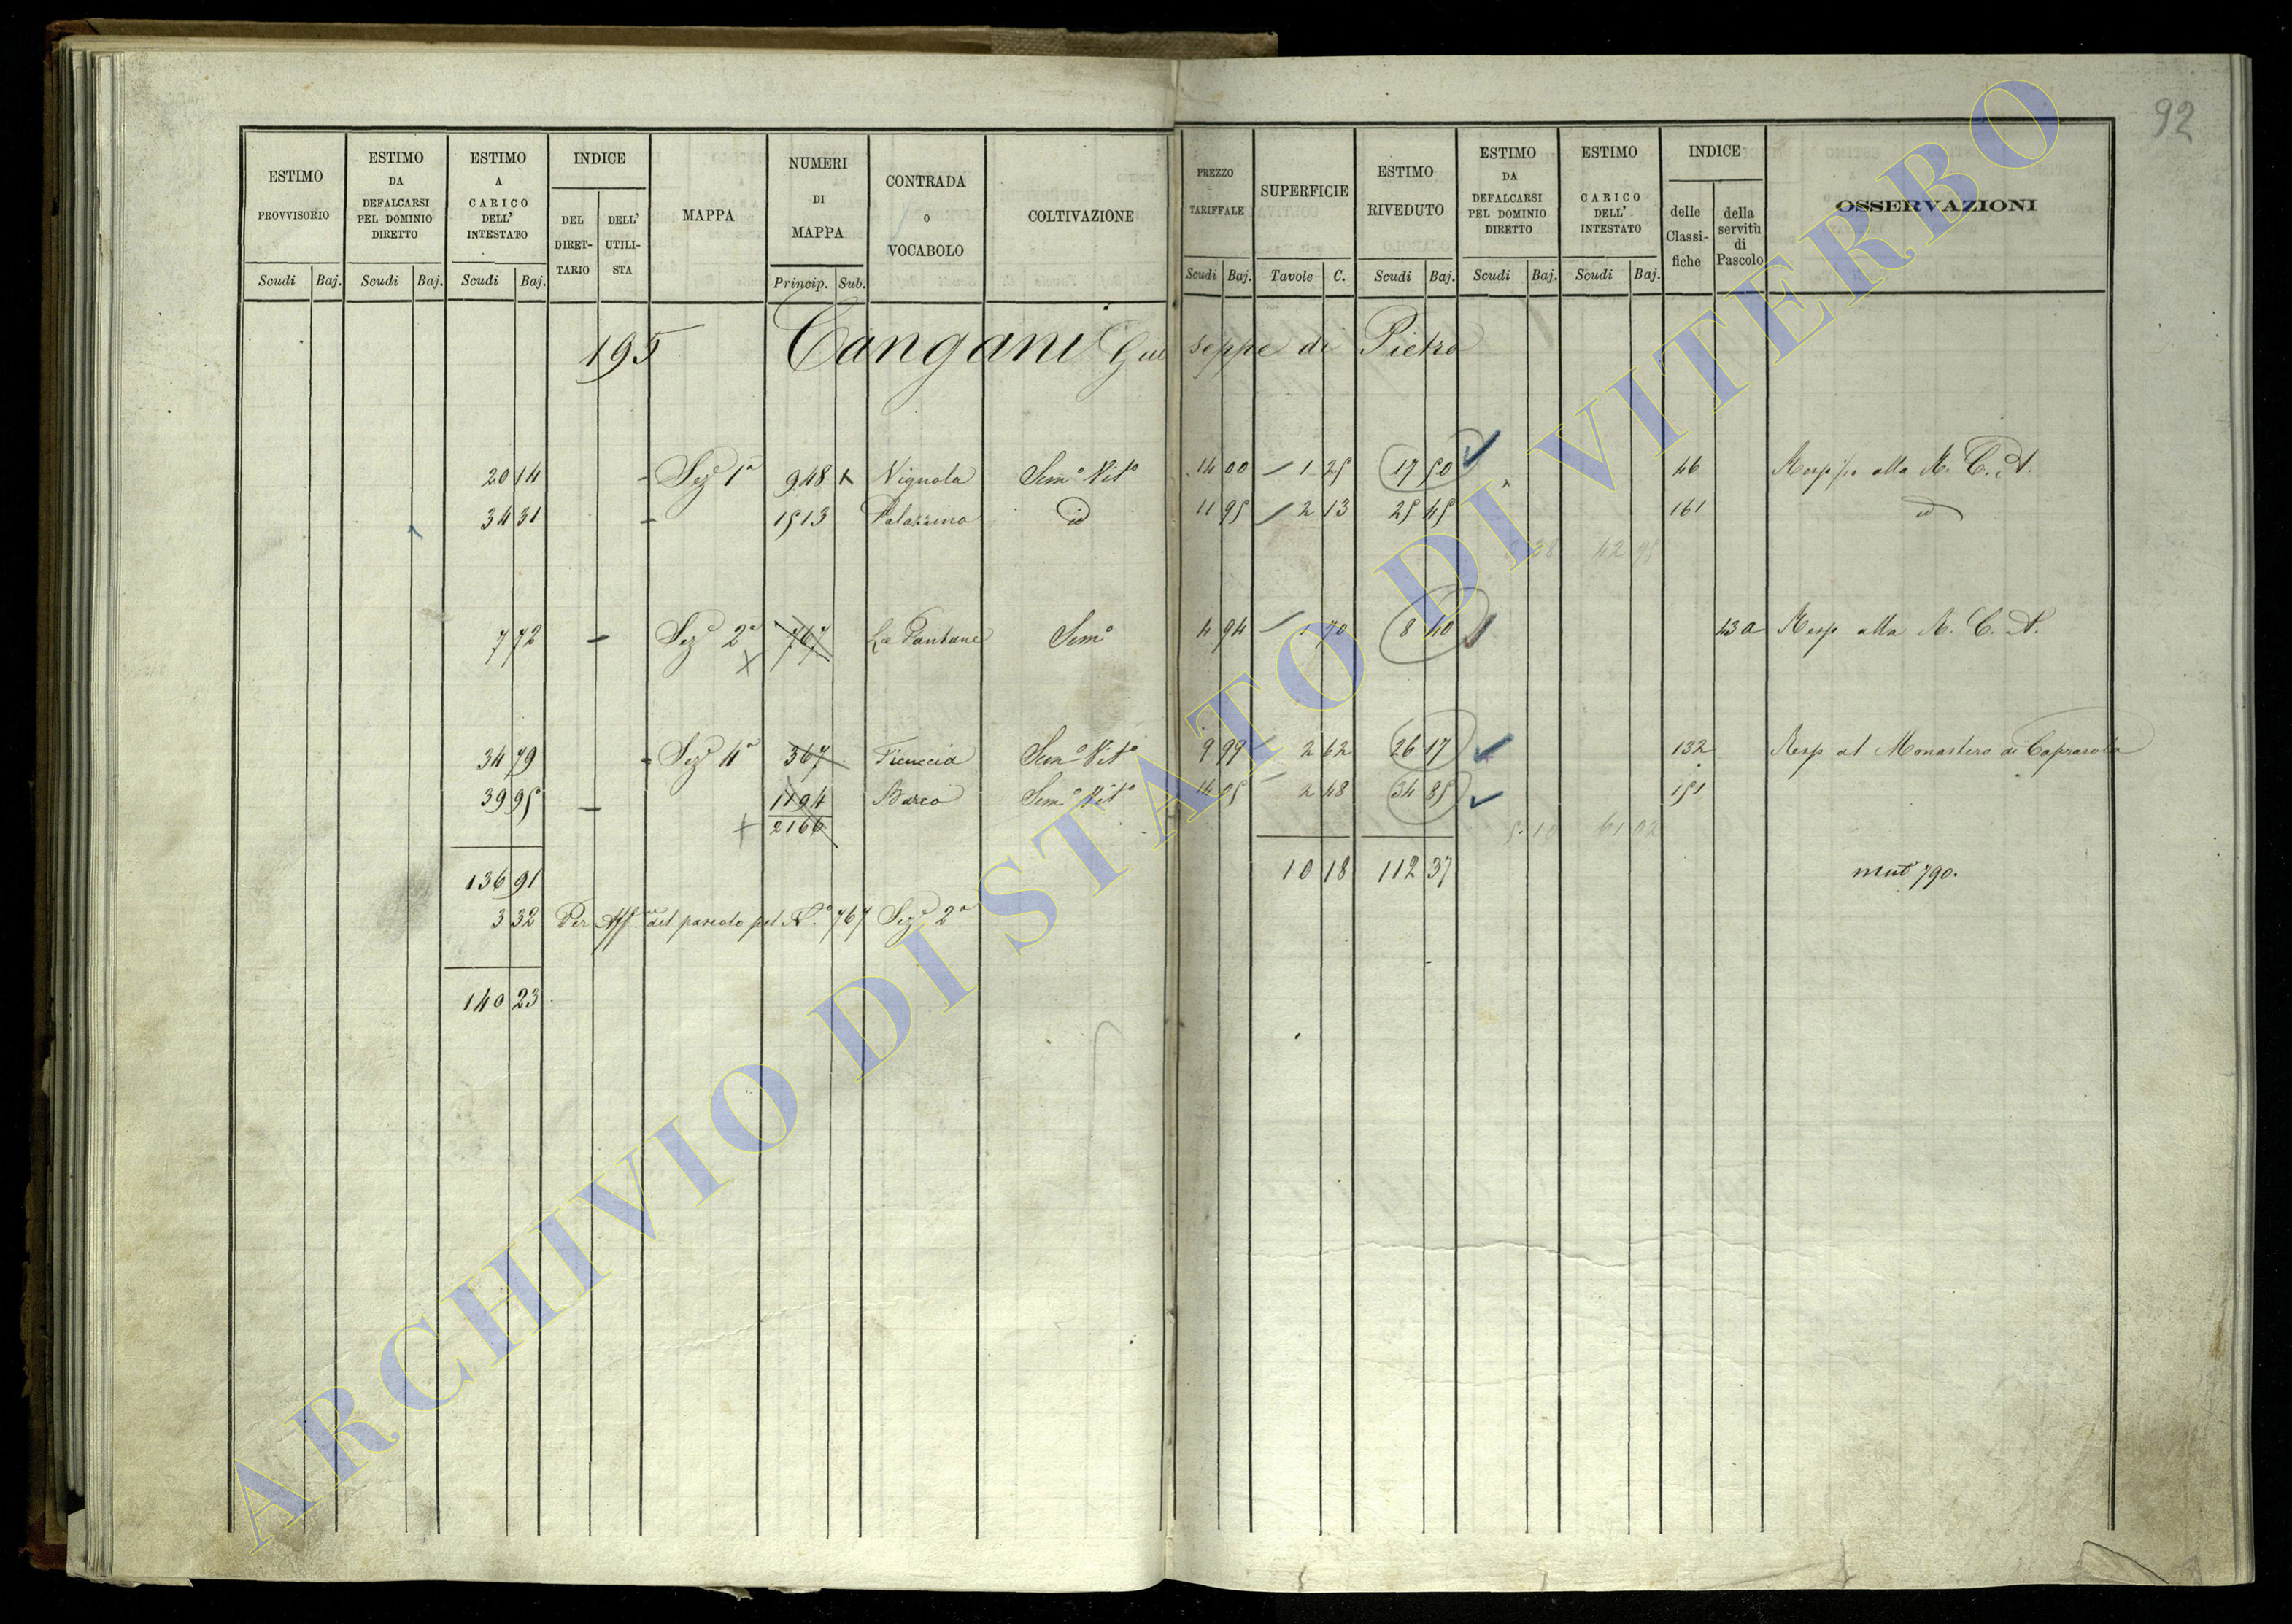 92
ESTIMO PROVVISORIO
ESTIMO DA DEFALCARSI PEL DOMINIO DIRETTO
ESTIMO A CARICO DELL' INTESTATO
INDICE
DEL DIRET-TARIO
DELL' UTILI-STA
MAPPA
NUMERI DI MAPPA
CONTRADA O VOCABOLO
COLTIVAZIONE
PREZZO TARIFFALE
SUPERFICIE
ESTIMO RIVEDUTO
ESTIMO DA DEFALCARSI PEL DOMINIO DIRETTO
ESTIMO CARICO DELL' INTESTATO
INDICE
delle Classi-fiche
della servitù di Pascolo
OSSERVAZIONI
Scudi Baj. Scudi Baj. Scudi Baj. Princip. Sub. Scudi Baj. Tavole C. Scudi Baj. Scudi Baj. Scudi Baj.
195 Cangani Giuseppe di Pietro
20 14 - Sez. 1a 948 x Vignola Semo Vito 14 00 1 25 17 50 46 Resp alla R. C. A.
34 31 - 1513 Palazzina id 11 95 2 13 25 45 161 id
42 95
7 72 - Sez. 2a 767 La Pantane Semo 4 94 1 70 8 40 43 a Resp alla R. C. A.
34 79 - Sez. 4a 367 Ficuccia Semo Vito 9 99 2 62 26 17 132 Resp al Monastero di Caprarola
39 95 - 1194 Barco Semo Vito 14 05 2 48 34 85 151
2166
5 10 61 02
136 91 10 18 112 37 mut 790.
3 32 Per Aff.ne del pascolo pel N.o 767 Sez. 2a
140 23
ARCHIVIO DI STATO DI VITERBO